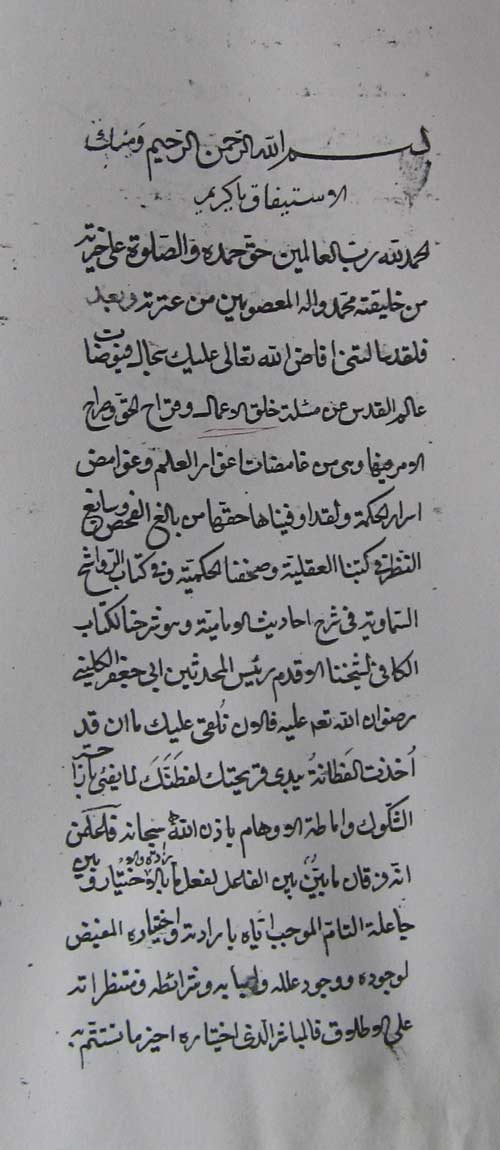 بسم الله الرحمن الرحيم ومنك
الاستيفاق يا كريم
الحمد لله رب العالمين حق حمده والصلوة على خيرته
من خليقته محمد واله المعصومين من عترته وبعد
فلقد سالتنى افاض الله تعالى عليك سجال فيوضات
عالم القدس عن مسئلة خلق الاعمال وقراح الحق وصراح
الامر فيها وهى من غامضات اغوار العلم وعوامض
اسرار الحكمة ولقد اوفيناها حقها من بالغ الفحص وسابغ
النظر فى كتبنا العقلية وصحفنا الحكمية وفى كتاب الرواشح
السماوية فى شرح احاديث الامامية وهو شرحنا لكتاب
الكافى لشيخنا الاقدم رئيس المحدثين ابى جعفر الكلينى
رضوان الله تعم عليه فالان نلقى عليك ما ان قد
اخذت الفطانة بيدى قريحتك لفطنك لما يفئ بازاحة
الشكوك واماطة الاوهام باذن الله سبحانه فلعلمن
انه فرقان ما بين بين الفاعل لفعل ما بالارادة والاختيار وبين
جاعله التام الموجب اياه بارادته واختياره المفيض
لوجوده ووجود علله واسبابه وشرائطه ومنتظراته
على الاطلاق فالمباشر الذى اختياره اخيز ما تستتم به